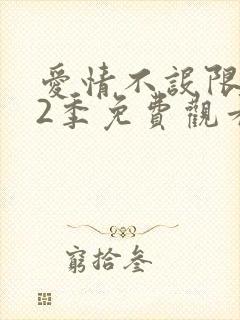 愛情不設限
2季免費觀看
窮拾叁